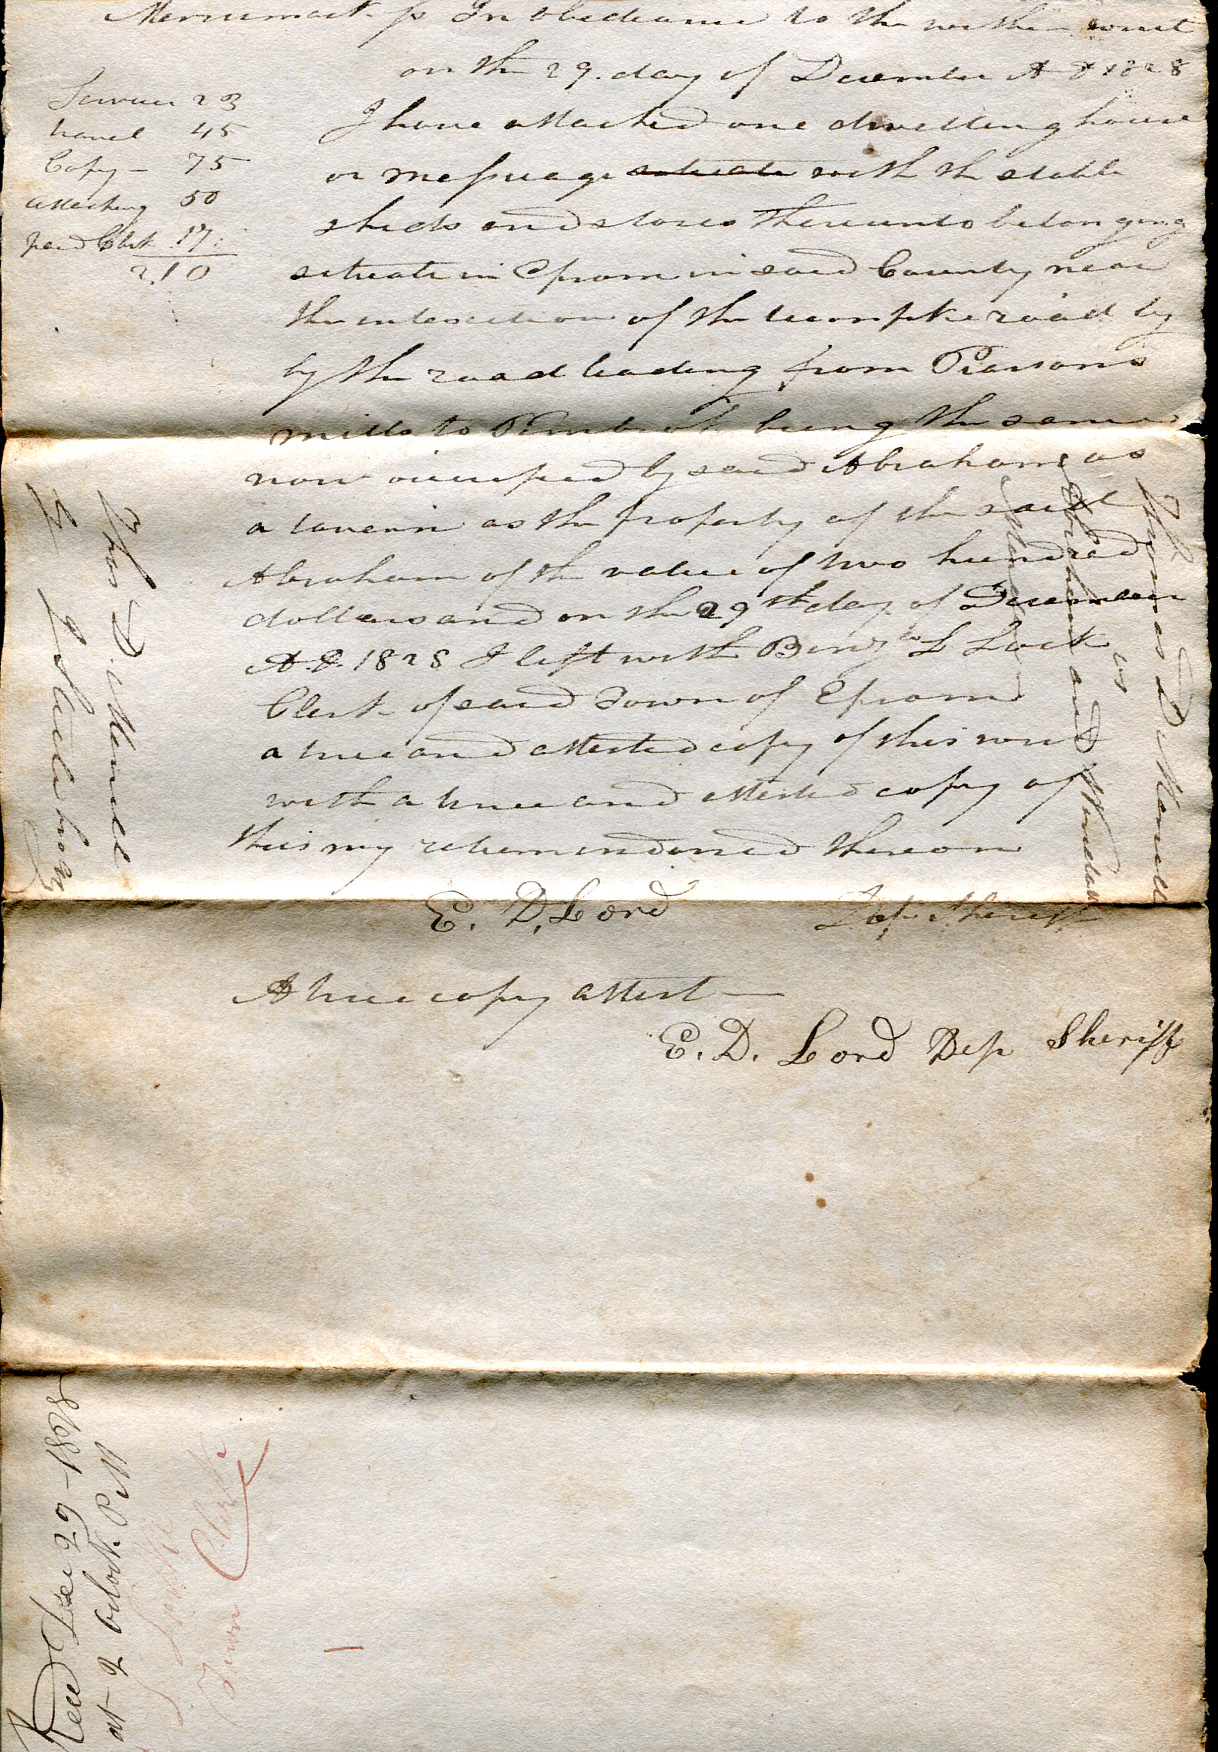 Merrimack ss In obedience to the within writ
on the 29. day of December A D 1828
I have attached one dwelling house
or messuage situate with the stable
sheds and stores thereunto belonging
situate in Epsom in said County near
the intesection of the turnpike road by
by the road leading from Pearsons
mills to Pembrok being the same
now occupied by said Abraham as
a tavern as the property of the said
Abraham of the value of two hundred
dollars and on the 29th day of December
A.D. 1828 I left with Benjn L Lock
Clerk of said Town of Epsom
a true and attested copy of this writ
with a true and attested copy of
this my return indorsed thereon
E. D. Lord Dep Sheriff
A true copy attest —
E. D. Lord Dep Sheriff
Service 23
travel 45
Copy — 75
attaching 50
paid Clerk 17
2.10
Thos D. Merrill
vs
Thomas D Merrill
vs
Abraham and Wendall
Recd Dec 29 - 1828
at 2 oclock PM
Town Clerk